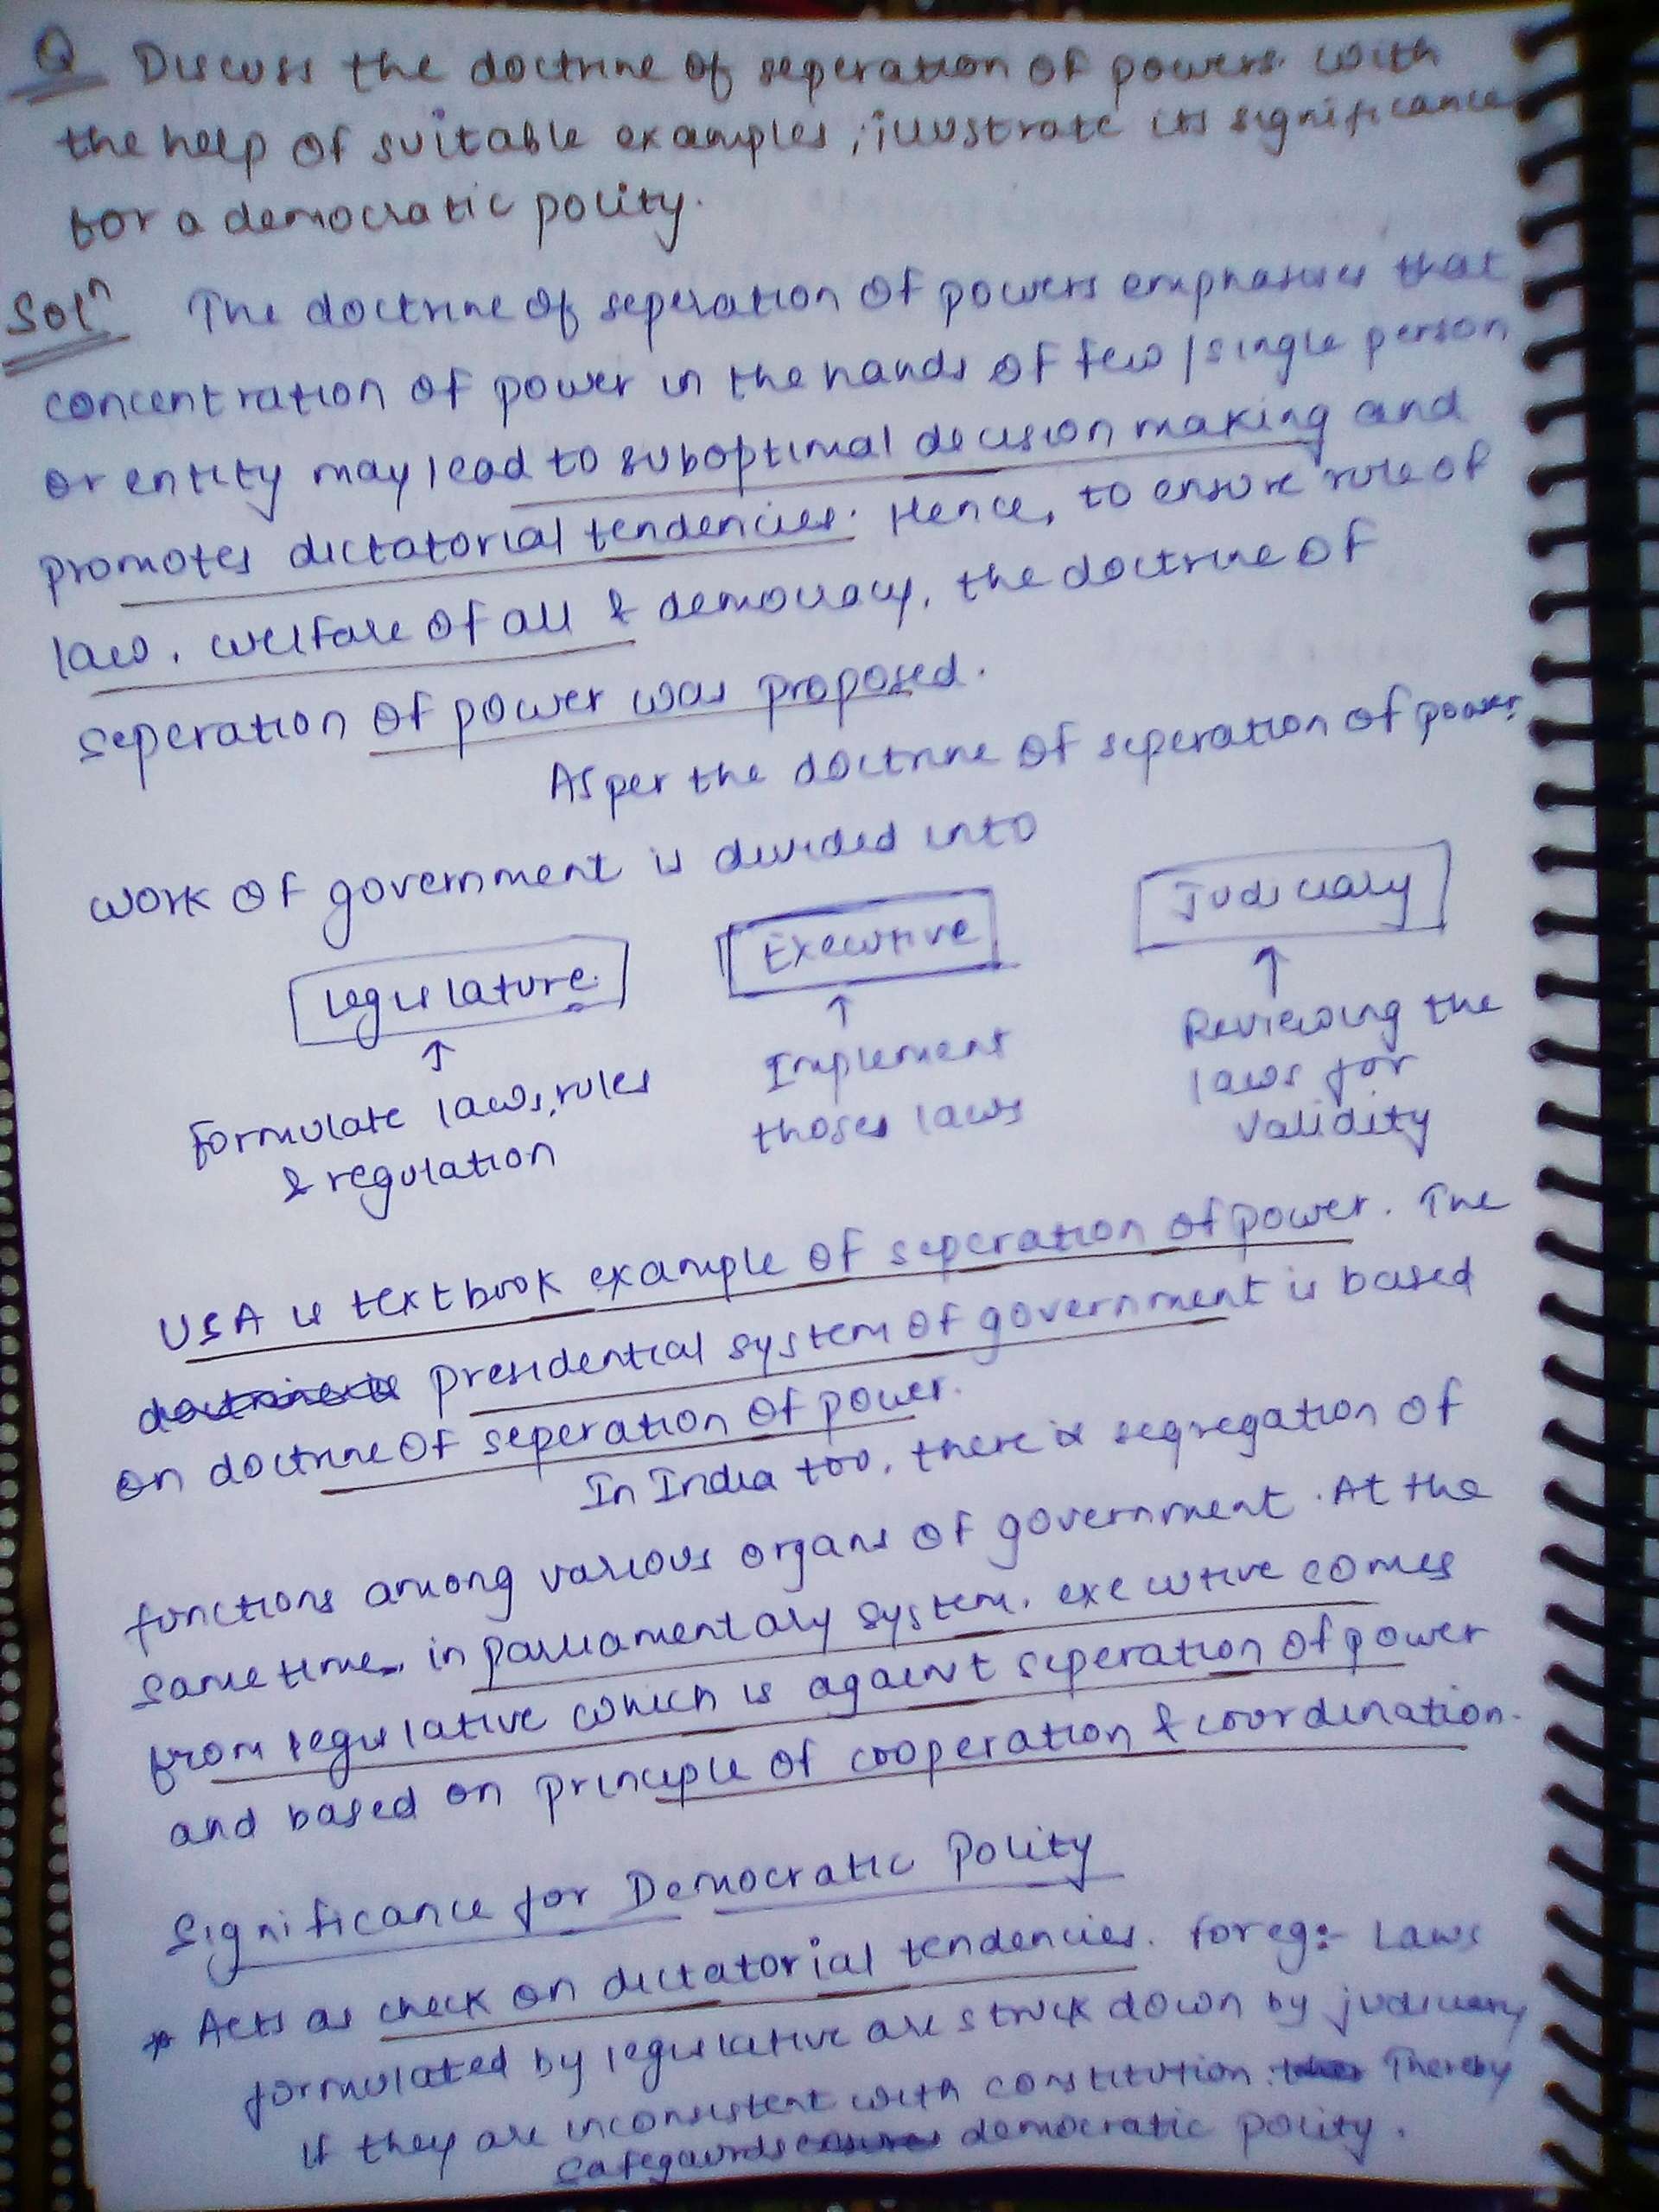 Q Discuss the doctrine of seperation of powers. With
the help of suitable examples, illustrate its significance
for a democratic polity.
Solⁿ The doctrine of seperation of powers emphasises that
concentration of power in the hands of few / single person
or entity may lead to suboptimal decision making and
promotes dictatorial tendencies. Hence, to ensure rule of
law, welfare of all & democracy, the doctrine of
seperation of power was proposed.
As per the doctrine of seperation of power,
work of government is divided into
Legislature Executive Judiciary
↑ ↑ ↑
Formulate laws, rules Implement Reviewing the
& regulation thoses laws laws for
validity
USA is textbook example of seperation of power. The
presidential system of government is based
on doctrine of seperation of power.
In India too, there is segregation of
functions among various organs of government. At the
same time, in parliamentary system, executive comes
from legislative which is against seperation of power
and based on principle of cooperation & coordination.
Significance for Democratic Polity
* Acts as check on dictatorial tendencies. For eg:- Laws
formulated by legislative are struck down by judiciary
if they are inconsistent with constitution. Thereby
safegaurds democratic polity.